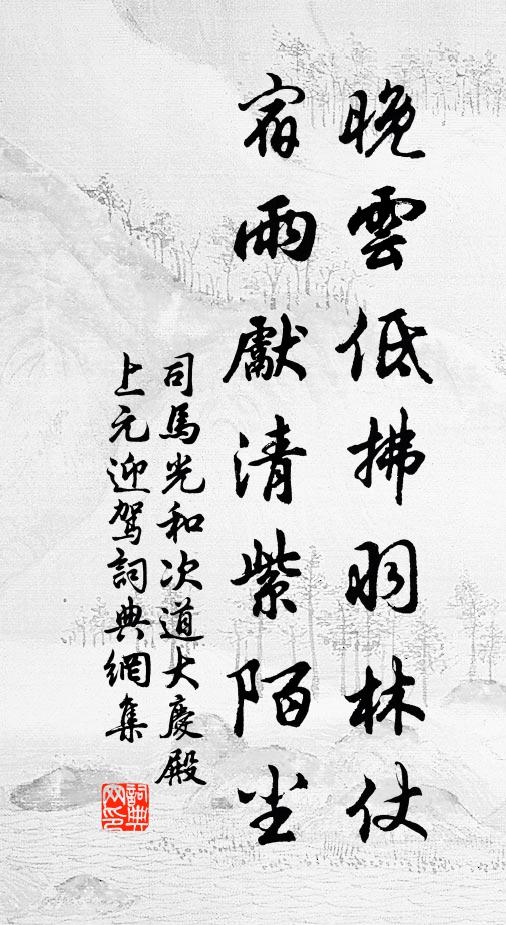 晚雲低拂羽林仗
宿雨獻清紫陌尘
司馬光和次道大慶殿
上元迎駕詞典網集
詞典網印